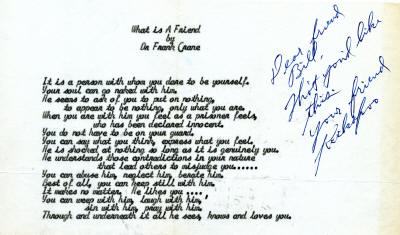 What is A Friend
by
Dr Frank Crane
It is a person with whom you dare to be yourself.
Your soul can go naked with him.
He seems to ask of you to put on nothing,
to appear to be nothing, only what you are.
When you are with him you feel as a prisoner feels,
who has been declared innocent.
You do not have to be on your guard.
You can say what you think, express what you feel.
He is shocked at nothing so long as it is genuinely you.
He understands those contradictions in your nature
that lead others to misjudge you......
You can abuse him, neglect him, berate him.
Best of all, you can keep still with him.
It makes no matter. He likes you ....
You can weep with him, laugh with him,
sin with him, pray with him.
Through and underneath it all he sees, knows and loves you.
Dear friend
Bill:
Thing you'd like
this.
Your friend